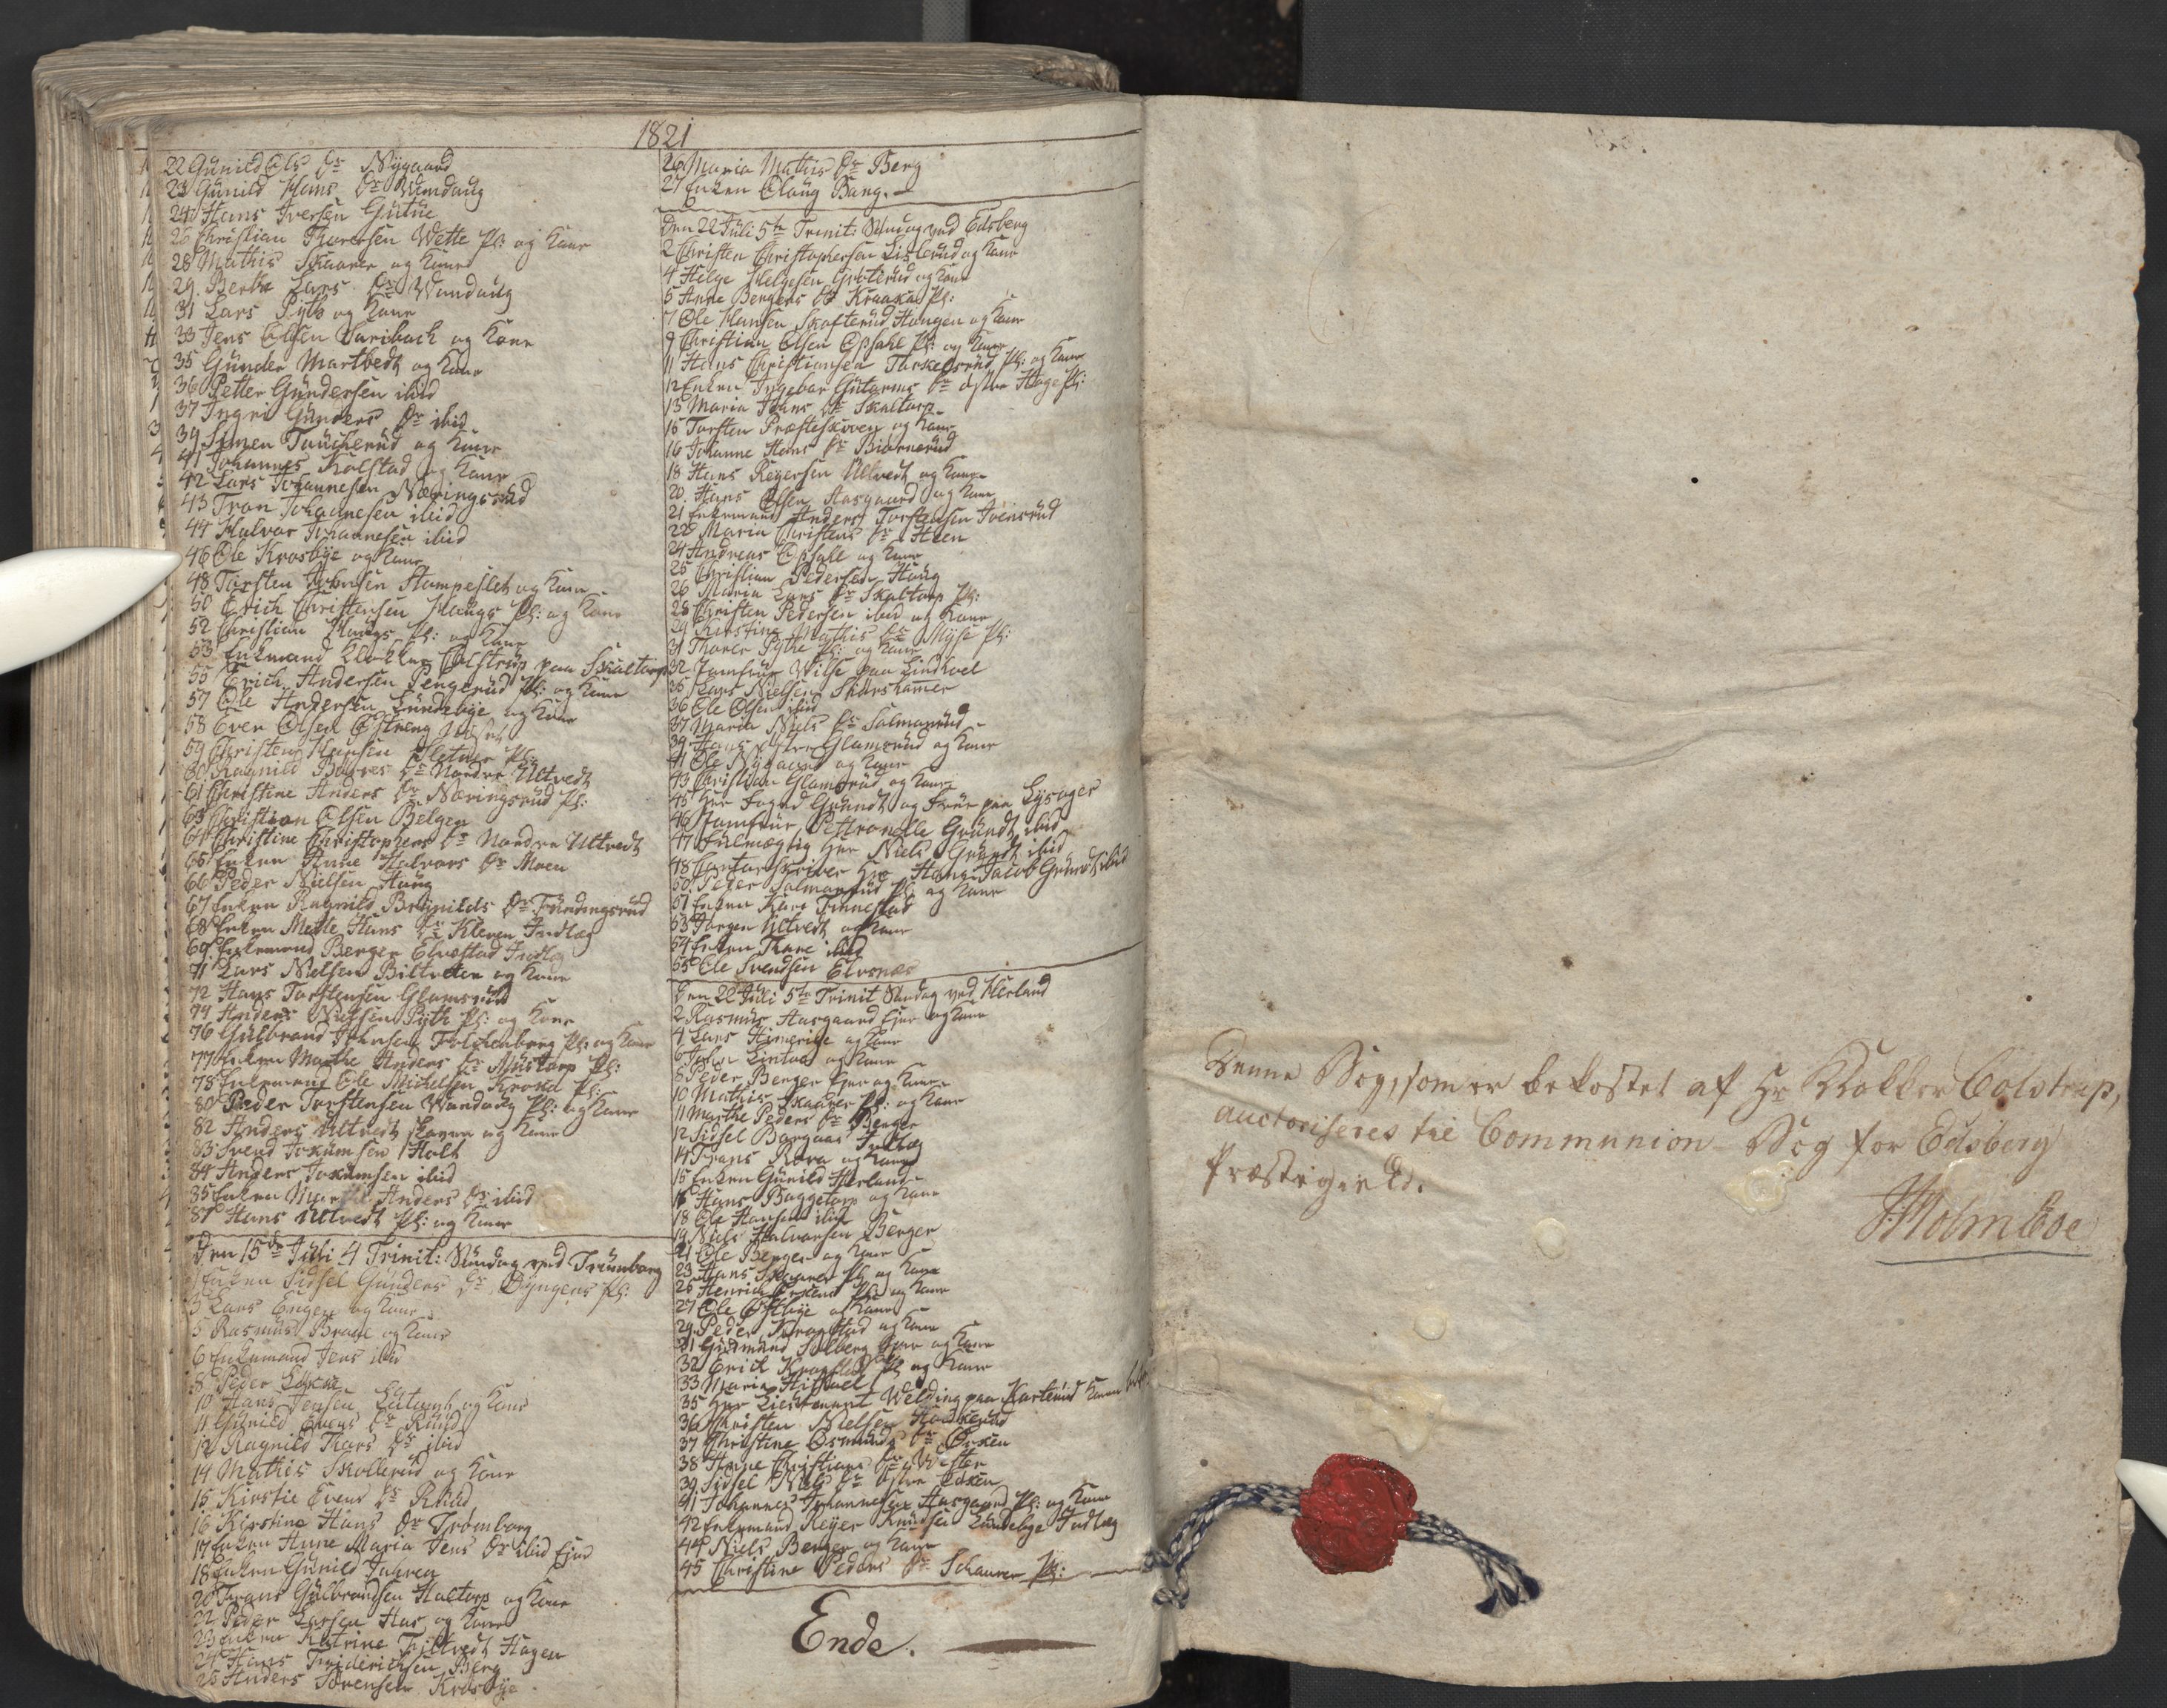 1821
22 Gunild Ols Dr Nygaard
23 Gunild Hans Dr Wandaug
24 Hans Iversen Gutue
26 Christian Thoresen Wette Pl: og Kane
28 Mathis Skaarer og Kane
29. Berthe Lars Dr Wandaug
31 Lars Pyth og Kane
33 Jens Olsen Saribach og Kone
35 Gunder Martvedt og Kane
36 Petter Gundersen ibid
37 Ingri Gunders Dr ibid
39 Simen Taucherud og Kane
41 Johannes Kolstad og Kane
42 Lars Johannesen Næringsrud
43 Tron Johannesen ibid
44 Halvor Johannesen ibid
46 Ole Krosbye og Kane
48 Torsten Johnsen Stompeslet og Kane
50 Erich Christensen Haugs Pl: og Kane
52 Christian Haugs Pl: og Kane
53 Enkemand Klokker Colstrup paa Skaltorp
55 Erich Andersen Pengerud Pl: og Kane
57 Ole Andersen Lundebye og Kane
58 Even Olsen Østreng
59 Christen Hansen Sletner Pl:
60 Ragnild Børres Dr Nordre Ultvedt
61 Christine Anders Dr Næringsrud Pl:
63 Christian Olsen Belgen
64 Christine Christophers Dr Nordre Ultvedt
65 Enken Anne Halvors Dr Moen
66 Peder Nielsen Haug
67 Enken Ragnild Brynilds Dr Fundingsrud
68 Enken Mette Hans Dr Kleven Indlæg
69 Enkemand Berger Elvestad Indlæg
71 Lars Nielsen Biltvetter og Kone
72 Hans Torstensen Glomsrud
74 Anders Nielsen Pyth Pl: og Kone
76 Gulbrand Johnsen Folchenborg Pl: og Kane
77 Enken Marthe Anders Dr Mustorp Pl:
78 Enkemand Ole Michelsen Kroka Pl:
80 Peder Torstensen Wandaug Pl: og Kane
82 Anders Ultvedt skoven og Kane
83 Svend Joxumsen Holt
84 Anders Joxumsen ibid
85 Enken Marthe Anders Dr ibid
87 Hans Ultvedt Pl: og Kaner
Den 15de Juli 4 Trinit: Søndag ved Trømborg
Enken Sidsel Gunders Dr Dyngens Pl:
3 Lars Engen og Kane
5 Rasmus Braae og Kane
6 Enkemand Jens ibid
8 Peder
10 Hans Jensen og Kane
11 Gunild Evens Dr Ruud
12 Ragnild Thors Dr ibid
14 Mathis Skollerud og Kone
15 Kirstie Evens Dr Ruud
16 Kirstine Hans Dr Trømborg
17 Enken Anne Maria Jens Dr ibid Ejer
18 Enken Gunild Jahren
20 Frans Gulbrandsen Haltorp og Kone
22 Peder Larsen Aas og Kane
23 Enken Katrine Hagen
24 Hans Friderichsen Berg
25 Anders Sørensen Krosbye
26 Maria Mathis Dr Berg
27 Enken Olaug Bang.
Den 22 Juli 5te Trinit: Søndag ved Edsberg
2 Christen Christophersen Lislerud og Kane
4 Helge Helgesen Groterud og Kane
5 Anne Bergers Dr Kraaka Pl:
7 Ole Hansen Skofterud Haugen og Kane
9 Christian Olsen Opsahl Pl: og Kane
11 Hans Christiansen Torkelsrud Pl: og Kane
12 Enken Ingebor Gutorms Dr østre Hage Pl:
13 Maria Hans Dr Skaltorp
15 Torsten Præsteskoven og Kane
16 Johanne Hans Dr Biørnerud
18 Hans Reyersen Ultvedt og Kane
20. Hans Olsen Aasgaard og Kane
21 Enkemand Anders Torstensen Ivensrud
22 Maria Christens Dr Heen
24 Andreas Opsahl og Kane
25 Christian Pedersen Haug
26 Maria Lars Dr Skaltorp Pl:
28 Christen Pedersen ibid og Kane
29 Kirstine Mathis Dr Myse Pl:
31 Thorer Pythe Pl: og Kane
32 Jomfrue Wilse paa Lindhoel
35 Lars Nielsen Skurshamer
36 Ole Olsen ibid
37 Maria Niels Dr Salmanrud
39 Hans østre Glomsrud og Kane
41 Ole Nygaard og Kane
43 Christian Glomsrud og Kane
45 Her Foged Grundt og Frue paa Lysager
46 Jomfrue Pettronelle Grundt ibid
47 Fulmægtig Her Niels Grundt ibid
48 Contorskriver Hr Hans Jacob Grundt ibid
50. Peder Salmonrud Pl: og Kane
51 Enken Kari Finnestad
53 Jørgen Ultvedt og Kane
54 Enken Thore ibid
55 Ole Svendsen Elvsnæs
Den 22 Juli 5te Trinit Søndag ved Herland
2 Rasmus Aasgaard Ejer og Kane
4 Lars Himerige og Kane
6 John Lintved og Kane
8 Peder Berger Ejer og Kane
10 Mathis Skaarer Pl: og Kane
11 Marthe Peders Dr Berger
12 Sidsel Borgaas Indlæg
14 Frans Rova og Kane
15 Enken Gunild Herland
16 Hans Buggetorp og Kane
18 Ole Hansen ibid
19 Niels Halvorsen Berger
21 Ole Berger og Kane
23 Hans Skaarer Pl: og Kane
25 Henrich Pl: og Kane
27 Ole Østbye og Kane
29. Peder Kragstad og Kane
31 Gudmund Solberg Ejer og Kane
32 Erich Kragstad Pl: og Kane
33 Maria
35 Her Lieutenant Welding paa Karterud
36 Christen Nielsen
37 Christine Osmunds Dr Ørsken
38 Anne Christians Dr Wester
39. Sidsel Niels Dr østre
41 Johannes Johannesen Aasgaard Pl: og Kane
42 Enkemand Reyer Knudsen Lundebye Indlæg
44 Niels Berger og Kane
45 Christine Peders Dr Schaurer Pl:
Ende.
Denne Bog, som er bekostet af Hr Klokker Colstrup,
auctoriseres til Communion-Bog for Edsberg
Præstegield.
JHolmboe